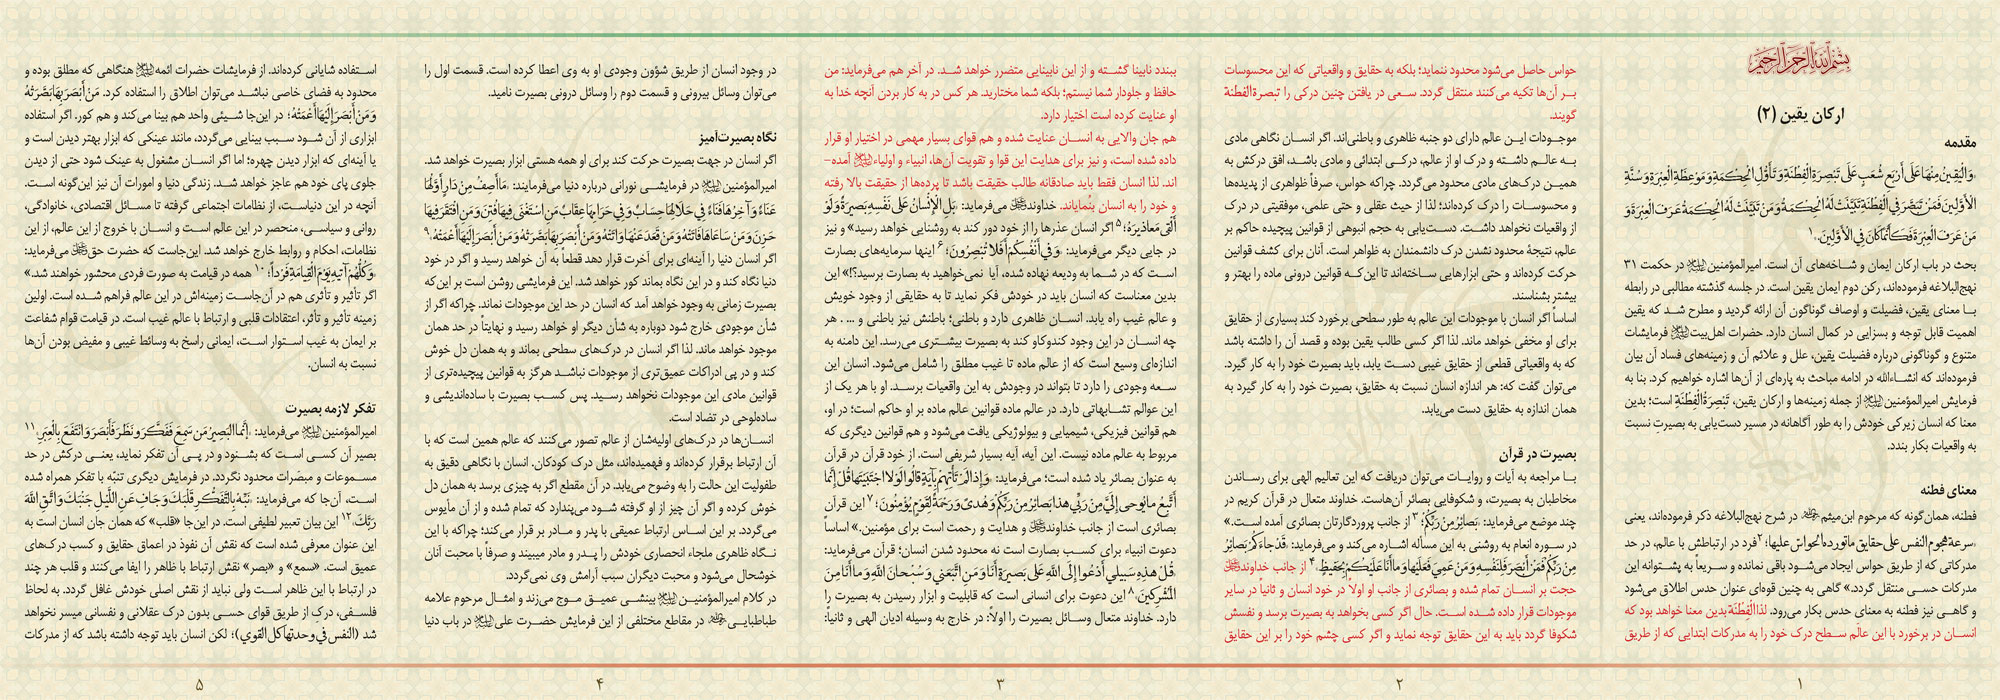 بسم الله الرحمن الرحیم
ارکان یقین (۲)
مقدمه
«وَالْیَقِینُ مِنْهَا عَلَى أَرْبَعِ شُعَبٍ عَلَى تَبْصِرَةِ الْفِطْنَةِ وَتَأَوُّلِ الْحِکْمَةِ وَمَوْعِظَةِ الْعِبْرَةِ وَسُنَّةِ
الْأَوَّلِینَ فَمَنْ تَبَصَّرَ فِی الْفِطْنَةِ تَبَیَّنَتْ لَهُ الْحِکْمَةُ وَمَنْ تَبَیَّنَتْ لَهُ الْحِکْمَةُ عَرَفَ الْعِبْرَةَ وَ
مَنْ عَرَفَ الْعِبْرَةَ فَکَأَنَّمَا کَانَ فِی الْأَوَّلِینَ.»۱
بحث در باب ارکان ایمان و شاخه‌های آن است. امیرالمؤمنین در حکمت ۳۱
نهج‌البلاغه فرموده‌اند، رکن دوم ایمان یقین است. در جلسه گذشته مطالبی در رابطه
بـا معنای یقین، فضیلت و اوصاف گوناگون آن ارائه گردید و مطرح شـد که یقین
اهمیت قابل توجه و بسزایی در کمال انسان دارد. حضرات اهل‌بیت فرمایشات
متنوع و گوناگونی درباره فضیلت یقین، علل و علائم آن و زمینه‌های فساد آن بیان
فرموده‌اند که انشـاءالله در ادامه مباحث به پاره‌ای از آن‌ها اشاره خواهیم کرد. بنا به
فرمایش امیرالمؤمنین از جمله زمینه‌ها و ارکان یقین، تَبْصِرَةُ الْفِطْنَةِ است؛ بدین
معنا که انسان زیرکی خودش را به طور آگاهانه در مسیر دست‌یابی به بصیرتِ نسبت
به واقعیات بکار بندد.
معنای فطنه
فطنه، همان‌گونه که مرحوم ابن‌میثم در شرح نهج‌البلاغه ذکر فرموده‌اند، یعنی
«سرعة هجوم النفس علی حقایق ما تورده الحواس علیها؛»۲ فرد در ارتباطش با عالم، در حد
مدرکاتی که از طریق حواس ایجاد می‌شـود باقی نمانده و سـریعاً به پشـتوانه این
مدرکات حسـی منتقل گردد.» گاهی به چنین قوه‌ای عنوان حدس اطلاق می‌شود
و گاهـی نیز فطنه به معنای حدس بکار می‌رود. لذا الْفِطْنَة بدین معنا خواهد بود که
انسـان در برخورد با این عالم سـطح درک خود را به مدرکات ابتدایی که از طریق
۱
حواس حاصل می‌شود محدود ننماید؛ بلکه به حقایق و واقعیاتی که این محسوسات
بـر آن‌ها تکیه می‌کنند منتقل گردد. سـعی در یافتن چنین درکی را تبصرة الفِطنَة
گویند.
موجـودات ایـن عالم دارای دو جنبه ظاهری و باطنی‌اند. اگر انسـان نگاهی مادی
بـه عالـم داشـته و درک او از عالم، درکـی ابتدائی و مادی باشـد، افق درکش به
همیـن درک‌های مادی محدود می‌گردد. چراکه حواس، صرفاً ظواهری از پدیده‌ها
و محسوسات را درک کرده‌اند؛ لذا از حیث عقلی و حتی علمی، موفقیتی در درک
از واقعیات نخواهد داشـت. دسـت‌یابی به حجم انبوهی از قوانین پیچیده حاکم بر
عالم، نتیجهٔ محدود نشدن درک دانشمندان به ظواهر است. آنان برای کشف قوانین
حرکت کرده‌اند و حتی ابزارهایی سـاخته‌اند تا این‌کـه قوانین درونی ماده را بهتر و
بیشتر بشناسند.
اساساً اگر انسان با موجودات این عالم به طور سطحی برخورد کند بسیاری از حقایق
برای او مخفی خواهد ماند. لذا اگر کسی طالب یقین بوده و قصد آن را داشته باشد
که به واقعیاتی قطعی از حقایق غیبی دسـت یابد، باید بصیرت خود را به کار گیرد.
می‌توان گفت که: هر اندازه انسان نسبت به حقایق، بصیرت خود را به کار گیرد به
همان اندازه به حقایق دست می‌یابد.
بصیرت در قرآن
بـا مراجعه به آیات و روایـات می‌توان دریافت که این تعالیم الهی برای رسـاندن
مخاطبان به بصیرت، و شکوفایی بصائر آن‌هاست. خداوند متعال در قرآن کریم در
چند موضع می‌فرماید: «بَصَائِرُ مِنْ رَبِّکُمْ؛۳ از جانب پروردگارتان بصائری آمده است.»
در سـوره انعام به روشنی به این مسأله اشـاره می‌کند و می‌فرماید: «قَدْ جَاءَکُمْ بَصَائِرُ
مِنْ رَبِّکُمْ فَمَنْ أَبْصَرَ فَلِنَفْسِهِ وَمَنْ عَمِیَ فَعَلَیْهَا وَمَا أَنَا عَلَیْکُمْ بِحَفِیظٍ؛۴ از جانب خداوند
حجت بر انسـان تمام شده و بصائری از جانب او اولاً در خود انسان و ثانیاً در سایر
موجودات قرار داده شـده است. حال اگر کسی بخواهد به بصیرت برسد و نفسش
شکوفا گردد باید به این حقایق توجه نماید و اگر کسی چشم خود را بر این حقایق
۲
ببندد نابینا گشـته و از این نابینایی متضرر خواهد شـد. در آخر هم می‌فرماید: من
حافظ و جلودار شما نیستم؛ بلکه شما مختارید. هر کس در به کار بردن آنچه خدا به
او عنایت کرده است اختیار دارد.
هم جان والایی به انسـان عنایت شده و هم قوای بسیار مهمی در اختیار او قرار
داده شـده است، و نیز برای هدایت این قوا و تقویت آن‌ها، انبیاء و اولیاء آمده-
اند. لذا انسان فقط باید صادقانه طالب حقیقت باشد تا پرده‌ها از حقیقت بالا رفته
و خود را به انسان بنمایاند. خداوند می‌فرماید: «بَلِ الْإِنْسَانُ عَلَى نَفْسِهِ بَصِیرَةٌ وَلَوْ
أَلْقَى مَعَاذِیرَهُ؛۵ اگر انسان عذرها را از خود دور کند به روشنایی خواهد رسید» و نیز
در جایی دیگر می‌فرماید: «وَفِی أَنْفُسِکُمْ أَفَلَا تُبْصِرُونَ؛۶ اینها سرمایه‌های بصارت
است که در شـما به ودیعه نهاده شده، آیا نمی‌خواهید به بصارت برسید؟!» این
بدین معناست که انسان باید در خودش فکر نماید تا به حقایقی از وجود خویش
و عالم غیب راه یابد. انسـان ظاهری دارد و باطنی؛ باطنش نیز باطنی و ... . هر
چه انسـان در این وجود کندوکاو کند به بصیرت بیشـتری می‌رسد. این دامنه به
اندازه‌ای وسیع است که از عالم ماده تا غیب مطلق را شامل می‌شود. انسان این
سـعه وجودی را دارد تا بتواند در وجودش به این واقعیات برسـد. او با هر یک از
این عوالم تشـابهاتی دارد. در عالم ماده قوانین عالم ماده بر او حاکم است؛ در او،
هم قوانین فیزیکی، شیمیایی و بیولوژیکی یافت می‌شود و هم قوانین دیگری که
مربوط به عالم ماده نیست. این آیه، آیه بسیار شریفی است. از خود قرآن در قرآن
به عنوان بصائر یاد شده است؛ می‌فرماید: «وَإِذَا لَمْ تَأْتِهِمْ بِآیَةٍ قَالُوا لَوْلَا اجْتَبَیْتَهَا قُلْ إِنَّمَا
أَتَّبِعُ مَا یُوحَى إِلَیَّ مِنْ رَبِّی هَذَا بَصَائِرُ مِنْ رَبِّکُمْ وَهُدًى وَرَحْمَةٌ لِقَوْمٍ یُؤْمِنُونَ؛۷ این قرآن
بصائری است از جانب خداوند و هدایت و رحمت است برای مؤمنین.» اساساً
دعوت انبیاء برای کسـب بصارت است نه محدود شدن انسان؛ قرآن می‌فرماید:
«قُلْ هَذِهِ سَبِیلِی أَدْعُوا إِلَى اللَّهِ عَلَى بَصِیرَةٍ أَنَا وَمَنِ اتَّبَعَنِی وَسُبْحَانَ اللَّهِ وَمَا أَنَا مِنَ
الْمُشْرِکِینَ.»۸ این دعوت برای انسانی است که قابلیت و ابزار رسیدن به بصیرت را
دارد. خداوند متعال وسـائل بصیرت را اولاً: در خارج به وسیله ادیان الهی و ثانیاً:
۳
در وجود انسان از طریق شؤون وجودی او به وی اعطا کرده است. قسمت اول را
می‌توان وسائل بیرونی و قسمت دوم را وسائل درونی بصیرت نامید.
نگاه بصیرت‌آمیز
اگر انسان در جهت بصیرت حرکت کند برای او همه هستی ابزار بصیرت خواهد شد.
امیرالمؤمنین در فرمایشـی نورانی درباره دنیا می‌فرمایند: «مَا أَصِفُ مِنْ دَارٍ أَوَّلُهَا
عَنَاءٌ وَ آخِرُهَا فَنَاءٌ فِی حَلَالِهَا حِسَابٌ وَ فِی حَرَامِهَا عِقَابٌ مَنِ اسْتَغْنَى فِیهَا فُتِنَ وَ مَنِ افْتَقَرَ فِیهَا
حَزِنَ وَ مَنْ سَاعَاهَا فَاتَتْهُ وَ مَنْ قَعَدَ عَنْهَا وَاتَتْهُ وَ مَنْ أَبْصَرَ بِهَا بَصَّرَتْهُ وَ مَنْ أَبْصَرَ إِلَیْهَا أَعْمَتْهُ؛۹
اگر انسان دنیا را آینه‌ای برای آخرت قرار دهد قطعاً به آن خواهد رسید و اگر در خود
دنیا نگاه کند و در این نگاه بماند کور خواهد شد. این فرمایشی روشن است بر این‌که
بصیرت زمانی به وجود خواهد آمد که انسان در حد این موجودات نماند. چراکه اگر از
شأن موجودی خارج شود دوباره به شأن دیگر او خواهد رسید و نهایتاً در حد همان
موجود خواهد ماند. لذا اگر انسان در درک‌های سطحی بماند و به همان دل خوش
کند و در پی ادراکات عمیق‌تری از موجودات نباشـد هرگز به قوانین پیچیده‌تری از
قوانین مادی این موجودات نخواهد رسـید. پس کسـب بصیرت با ساده‌اندیشی و
ساده‌لوحی در تضاد است.
انسـان‌ها در درک‌های اولیه‌شان از عالم تصور می‌کنند که عالم همین است که با
آن ارتباط برقرار کرده‌اند و فهمیده‌اند، مثل درک کودکان. انسان با نگاهی دقیق به
طفولیت این حالت را به وضوح می‌یابد. در آن مقطع اگر به چیزی برسد به همان دل
خوش کرده و اگر آن چیز از او گرفته شـود می‌پندارد که تمام شده و از آن مأیوس
می‌گردد. بر این اسـاس ارتباط عمیقی با پدر و مـادر بر قرار می‌کند؛ چراکه با این
نـگاه ظاهری ملجاء انحصاری خودش را پـدر و مادر میبیند و صرفاً با محبت آنان
خوشحال می‌شود و محبت دیگران سبب آرامش وی نمی‌گردد.
در کلام امیرالمؤمنیـن بینشـی عمیـق مـوج می‌زند و امثـال مرحوم علامه
طباطبایـی در مقاطع مختلفی از این فرمایش حضـرت علی در باب دنیا
۴
اسـتفاده شایانی کرده‌اند. از فرمایشات حضرات ائمه هنگاهی که مطلق بوده و
محدود به فضای خاصی نباشـد می‌توان اطلاق را استفاده کرد. مَنْ أَبْصَرَ بِهَا بَصَّرَتْهُ
وَ مَنْ أَبْصَرَ إِلَیْهَا أَعْمَتْهُ؛ در این‌جا شـیئی واحد هم بینا می‌کند و هم کور. اگر استفاده
ابزاری از آن شـود سـبب بینایی می‌گردد، مانند عینکی که ابزار بهتر دیدن است و
یا آینه‌ای که ابزار دیدن چهره؛ اما اگر انسـان مشغول به عینک شود حتی از دیدن
جلوی پای خود هم عاجز خواهد شـد. زندگی دنیا و امورات آن نیز این‌گونه است.
آنچه در این دنیاسـت، از نظامات اجتماعی گرفته تا مسـائل اقتصادی، خانوادگی،
روانی و سیاسـی، منحصر در این عالم است و انسـان با خروج از این عالم، از این
نظامات، احکام و روابط خارج خواهد شد. این‌جاست که حضرت حق می‌فرماید:
«وَکُلُّهُمْ آتِیهِ یَوْمَ الْقِیَامَةِ فَرْدًا؛۱۰ همه در قیامت به صورت فردی محشور خواهند شد.»
اگر تأثیر و تأثری هم در آن‌جاسـت زمینه‌اش در این عالم فراهم شـده است. اولین
زمینه تأثیر و تأثر، اعتقادات قلبی و ارتباط با عالم غیب است. در قیامت قوام شفاعت
بر ایمان به غیب اسـتوار اسـت، ایمانی راسخ به وسائط غیبی و مفیض بودن آن‌ها
نسبت به انسان.
تفکر لازمه بصیرت
امیرالمؤمنین می‌فرماید: «إِنَّمَا الْبَصِیرُ مَنْ سَمِعَ فَفَکَّرَ وَ نَظَرَ فَأَبْصَرَ وَ انْتَفَعَ بِالْعِبَرِ؛۱۱
بصیر آن کسـی است که بشنود و در پی آن تفکر نماید، یعنی درکش در حد
مسـموعات و مبصَرات محدود نگردد. در فرمایش دیگری تنبّه با تفکر همراه شده
است، آن‌جا که می‌فرماید: «نَبِّهْ بِالتَّفَکُّرِ قَلْبَکَ وَ جَافِ عَنِ اللَّیْلِ جَنْبَکَ وَ اتَّقِ اللَّهَ
رَبَّکَ.»۱۲ این بیان تعبیر لطیفی است. در این‌جا «قلب» که همان جان انسان است به
این عنوان معرفی شده است که نقش آن نفوذ در اعماق حقایق و کسب درک‌های
عمیق است. «سمع» و «بصر» نقش ارتباط با ظاهر را ایفا می‌کنند و قلب هر چند
در ارتباط با این ظاهر است ولی نباید از نقش اصلی خودش غافل گردد. به لحاظ
فلسـفی، درک از طریق قوای حسـی بدون درک عقلانی و نفسانی میسر نخواهد
شد (النفس فی وحدتها کل القوی)؛ لکن انسان باید توجه داشته باشد که از مدرکات
۵